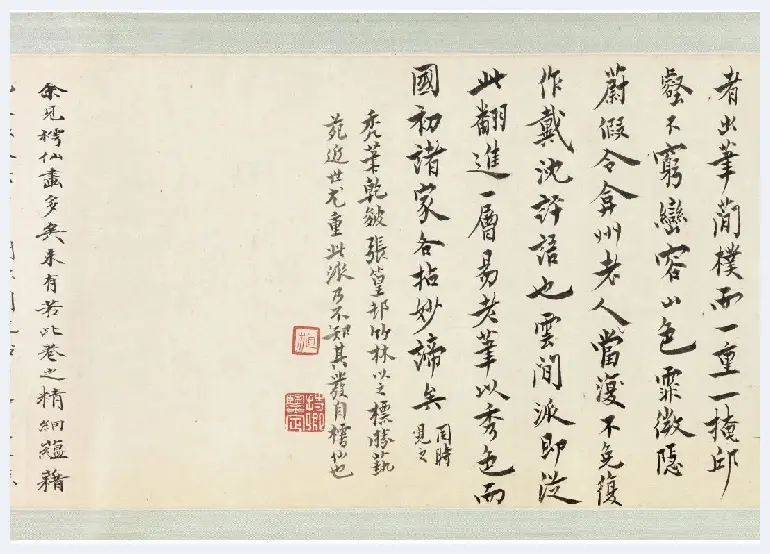 者出筆蕳樸而一重一掩邱
壑不窮巒容山色霏微隱
蔚假令弇州老人當復不免復
作戴沈評語也雲間派即從
此翻進一層易老筆以秀色而
國初諸家各拈妙諦矣同時
覓之
禿筆乾皴張篁邨竹林以之標勝藝
苑近世尤重此派乃不知其發自樗仙也
余見樗仙畫多矣未有若此卷之精細蘊藉